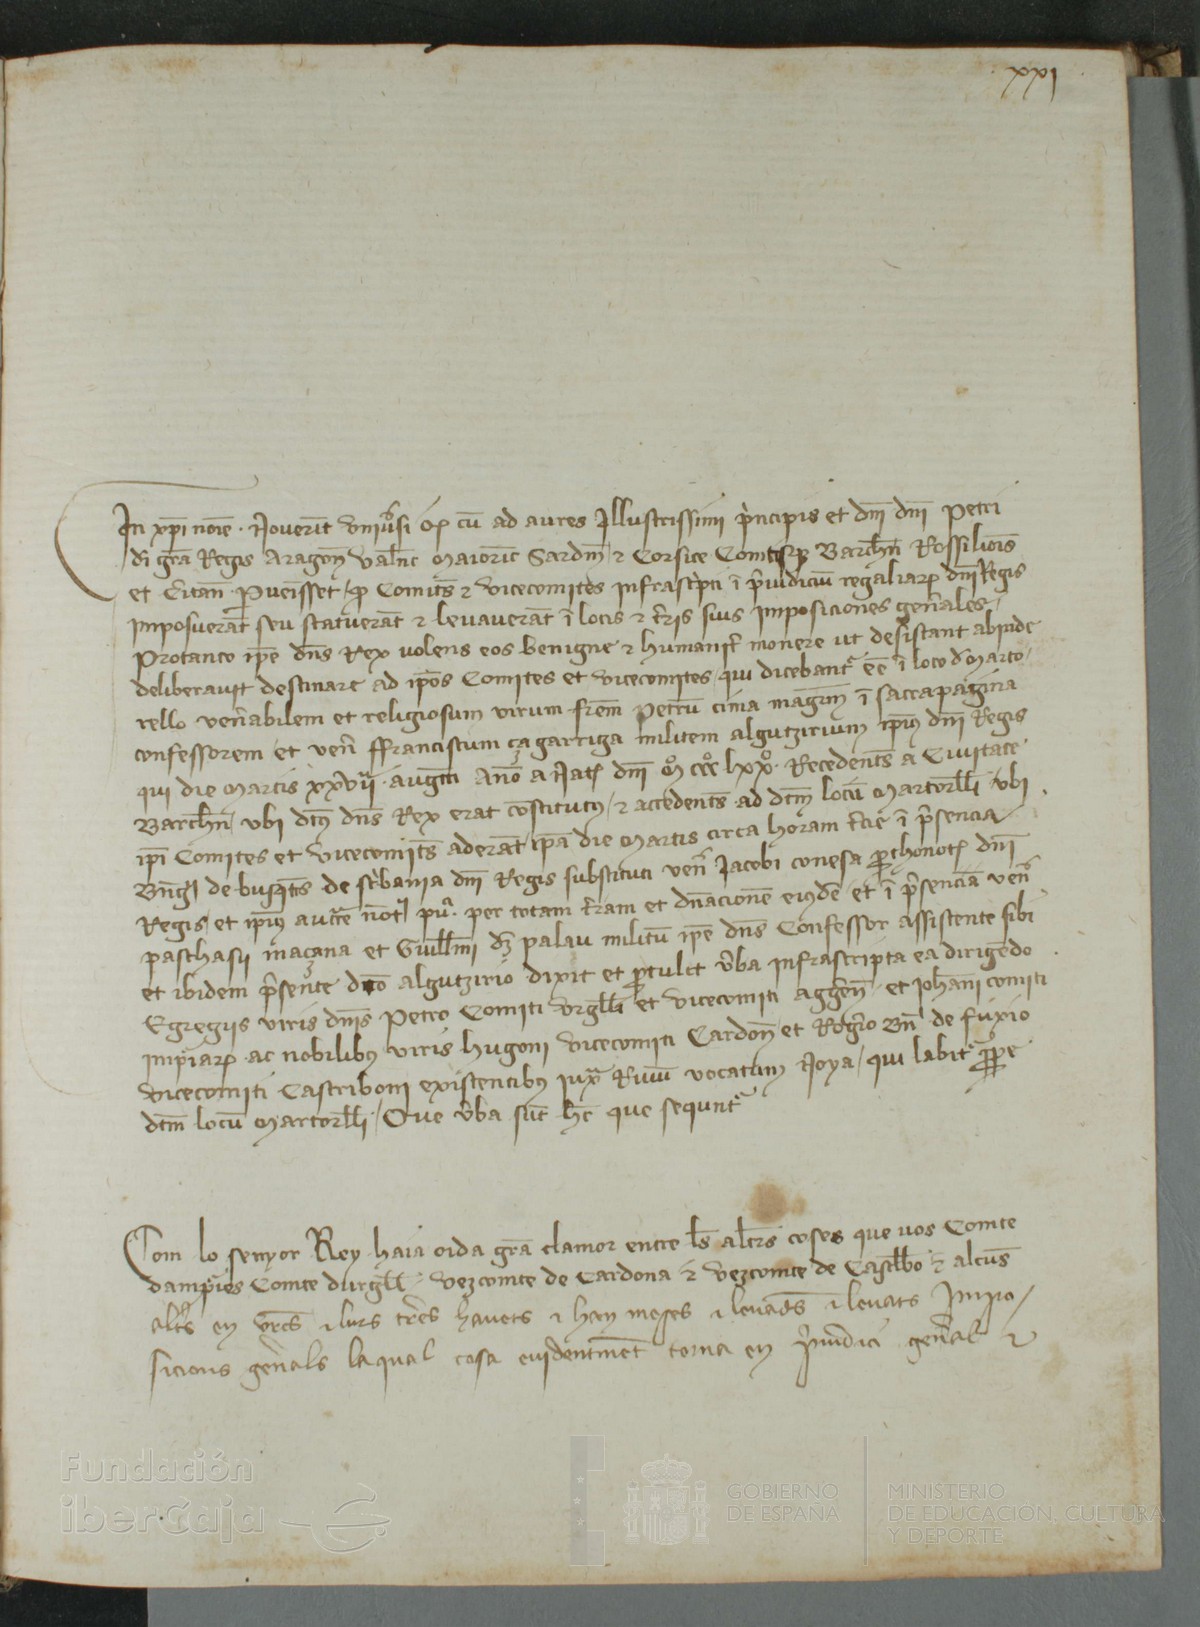 xxi
In xp̄i noīe. Nouerīt vniũsi qđ cū ad aures Illustrissimi prīncipis et dn̄i dn̄i Petri
dī grā Regis Aragoñ Valn̄c Maioric̄ Sardīn̄ ⁊ Corsice Comitisqꝫ Barchn̄ Rossilioīs
et C̄ritañ ꝑuēisset / qđ Comit̄s ⁊ vicecomites infrasc̄pti ī p̄iudiciū regaliarꝫ dn̄i Regis
imposuerāt seu statuerāt ⁊ leuauerāt ī locis ⁊ t̄ris suis imposiciones gen̄ales /
Protanto ip̄e dn̄s Rex uolens eos benigne ⁊ humanit̄ monere ut desistant abinde
deliberauit destinare ad ip̄os Comites et vicecomites / qui dicebant᷑ eē ī loco d Marto/
rello ven̄abilem et religiosum virum frēm Petrū cima magrm̄ ī sacrapagina
confessorem / et ven̄ ffranciscum çagarriga militem algutzirium ip̄ius dn̄i Regis
qui die Martis xxvij augusti Anō a Natꝫ dn̄i Mº cccº lxxº. Recedent̄s a Ciuitate
Barchn̄ / vbi dc̄us dn̄s Rex erat cōstitutꝰ / ⁊ accedent̄s ad dc̄m locū Martorell̄i / vbi
ip̄i Comites et vicecomit̄s aderāt / ip̄a die Martis circa horam t̄cie ī p̄sencia
Bn̄g de busqt̄s de sc̄bania dn̄i Regis substituti ven̄ Jacobi conesa ꝓthonotꝫ dn̄i
Regis / et ip̄ius auct̄e not̄ pu᷑. per totam t̄ram et dn̄acionē eiusdē / et ī p̄senciā ven̄
paschasij maçana et Guill̄mi dꝫ palau militū ip̄e dn̄s Confessor assistente sibi
et ibidem p̄sente dc̄o algutzirio dixit et ꝓtulit v̄ba infrascripta ea dirigēdo
Egregijs viris dn̄is Petro Comiti vrgll̄i et vicecomiti aggeñ / et Joh̄ani comiti
impiarꝫ ac nobilibꝰ viris hugoni vicecomiti Cardoñ / et Rog̃io Bn̄ de fuxio
vicecomiti Castriboni existentibꝰ iux̄ Riuū vocatum Noya / qui labit᷑ ꝓpe
dc̄m locū Martorell̄i / Que v̄ba sūt hec que sequnt᷑
Com lo senyor Rey haia oida grā clamor entre l̄s alt̄rs coses que uos Comte
dampūies Comte durgell̄ / vezcomte de Cardona ⁊ vezcomte de Castellbo ⁊ alcūs
alt̄s en vr̄es ⁊ lurs t̄res hauets ⁊ han meses ⁊ leuad̄s ⁊ leuats Impo/
sicions gen̄als laqual cosa euidentmēt torna en p̄iudici gen̄al ⁊
Fundación
iberCaja
GOBIERNO
DE ESPAÑA
MINISTERIO
DE EDUCACIÓN, CULTURA
Y DEPORTE